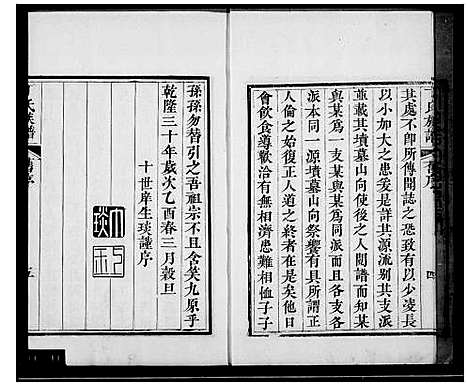 其處不即所傳聞誌之恐致有以少凌長
以小加大之患爰是詳其源流别其支派
並載其墳墓山向使後之人閲譜而知某
與某爲一支某與某爲同派而且各支各
派本同一源墳墓山向祭饗有具所謂正
人倫之始復正人道之終者在是矣他日
會飲食尊歡洽有慶相濟患難相恤子子
孫孫勿替引之吾祖宗不且含笑九原乎
乾隆三十年歲次乙酉春三月穀旦
十世庠生琰謹序
氏族譜
舊序
五
四
琰